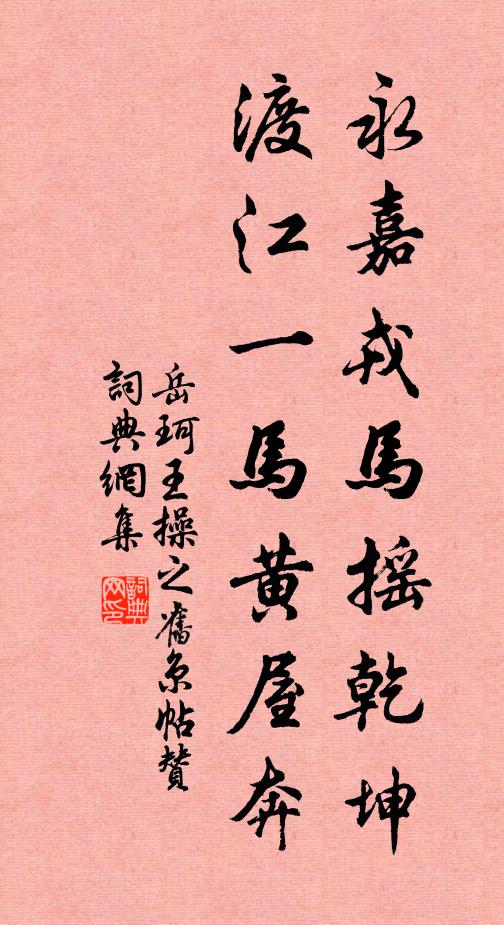 永嘉戎馬摇乾坤
渡江一馬黄屋奔
岳珂王操之舊京帖贊
詞典網集
詞典
网印